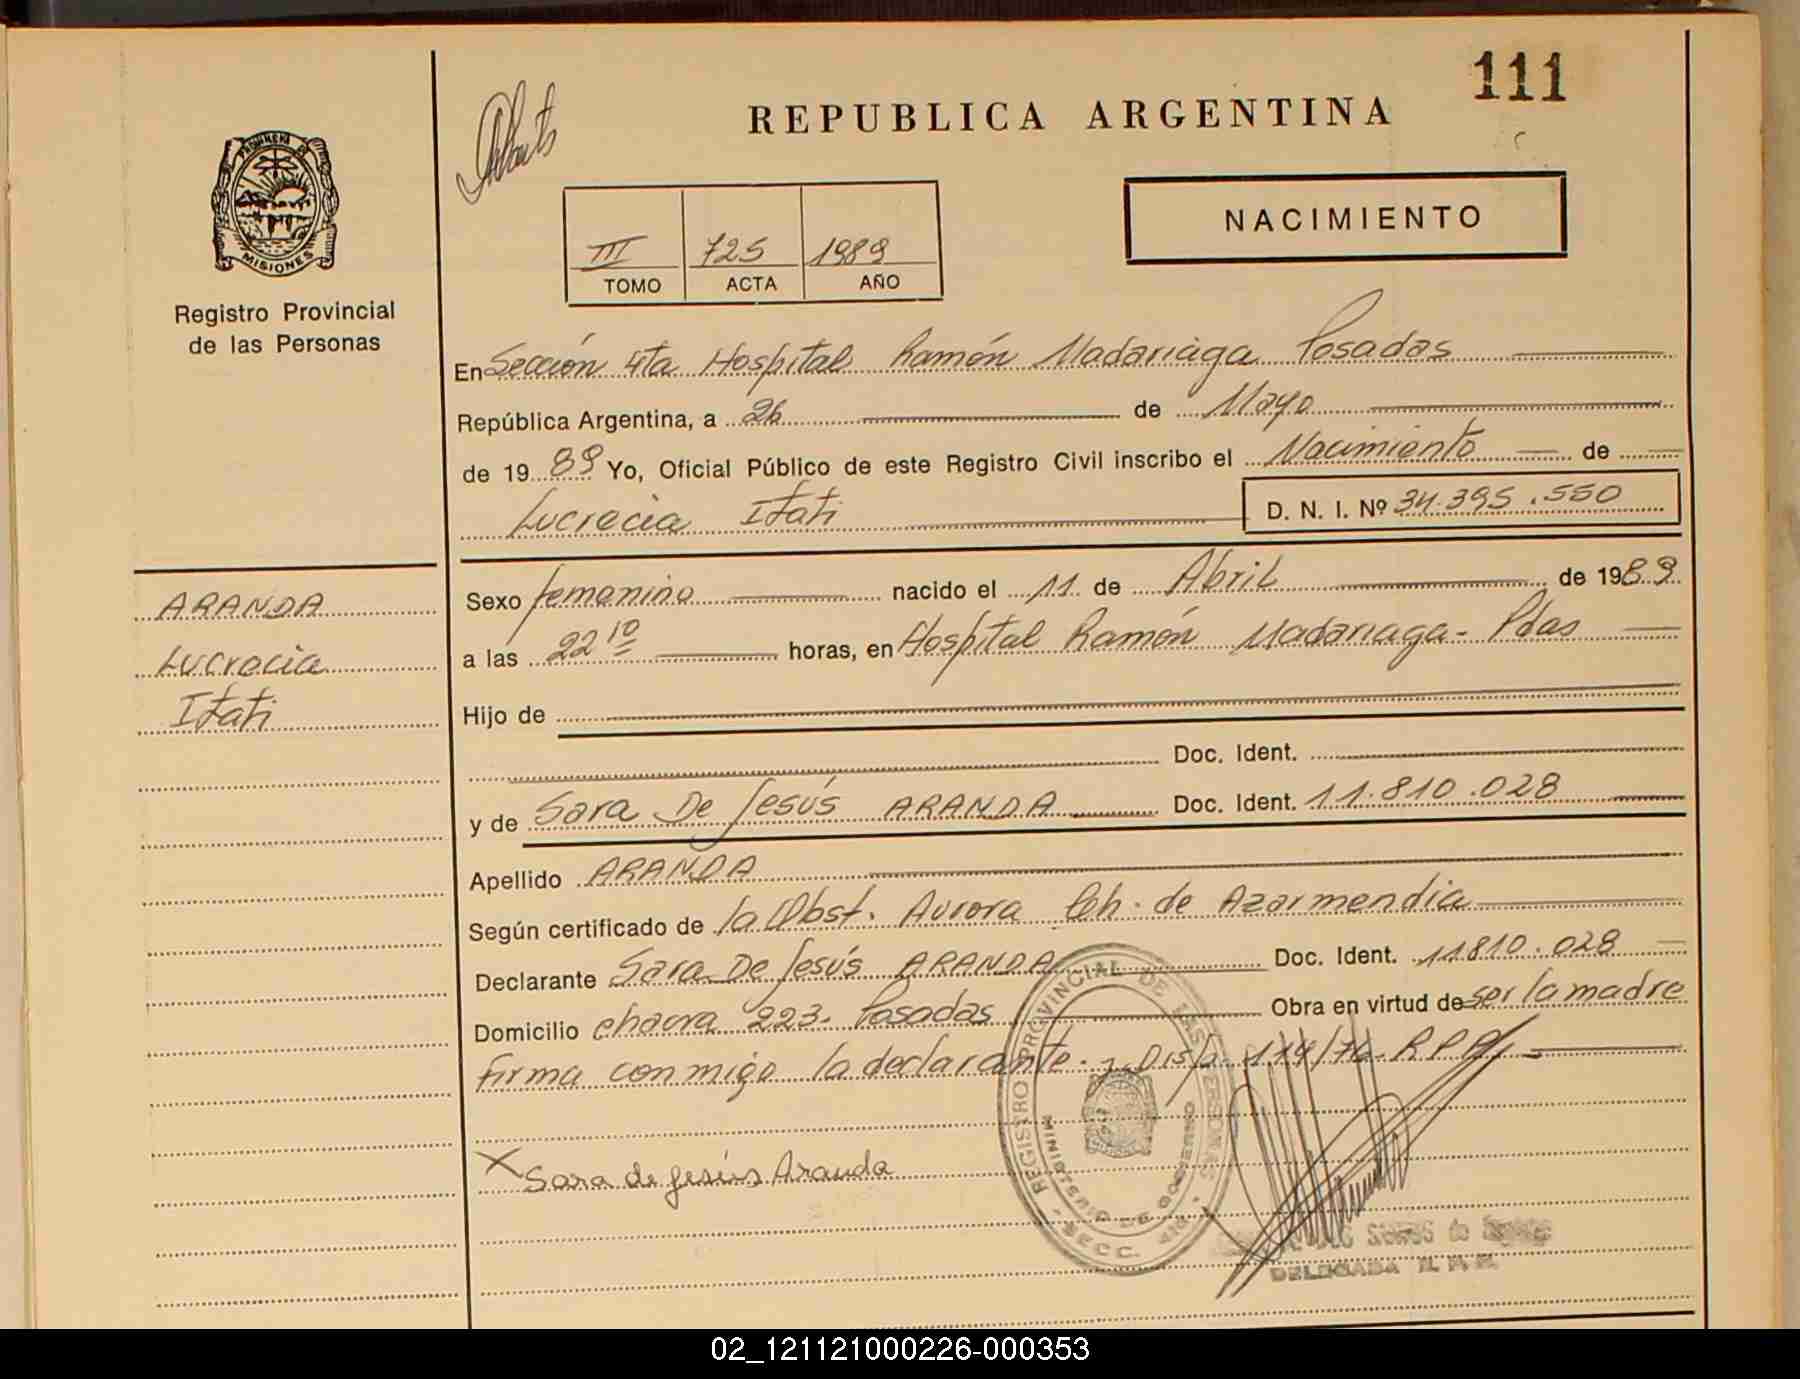 111
REPUBLICA ARGENTINA
NACIMIENTO
PROVINCIA DE
MISIONES
Registro Provincial
de las Personas
III 725 1989
TOMO ACTA AÑO
En Sección 4ta Hospital Ramón Madariaga Posadas
República Argentina, a 26 de Mayo
de 1989 Yo, Oficial Público de este Registro Civil inscribo el Nacimiento de
Lucrecia Itati D. N. I. Nº 34.395.550
ARANDA
Lucrecia
Itati
Sexo femenino nacido el 11 de Abril de 1989
a las 22 10 horas, en Hospital Ramón Madariaga - Pdas
Hijo de
Doc. Ident.
y de Sara De Jesús ARANDA Doc. Ident. 11.810.028
Apellido ARANDA
Según certificado de la Obst. Aurora Ch. de Azarmendia
Declarante Sara De Jesús ARANDA Doc. Ident. 11810.028
Domicilio chacra 223. Posadas Obra en virtud de ser la madre
firma conmigo la declarante. Disp. 174/76 R P P
X Sara de Jesús Aranda
REGISTRO PROVINCIAL DE LAS PERSONAS
MINISTERIO DE GOBIERNO
DELEGADA R. P. P.
02_121121000226-000353